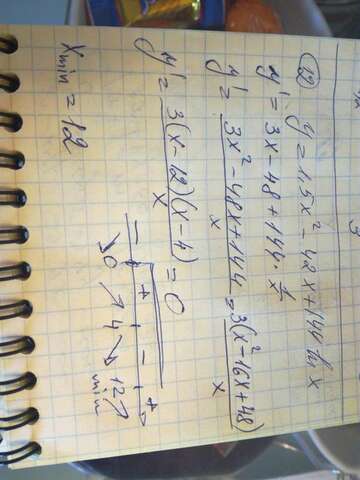 (12) y = 1,5x² - 48x + 144 ln x
y' = 3x - 48 + 144 · 1/x
y' = (3x² - 48x + 144)/x = 3(x² - 16x + 48)/x
y' = 3(x - 12)(x - 4)/x = 0
- + - +
0 4 12
min
x min = 12